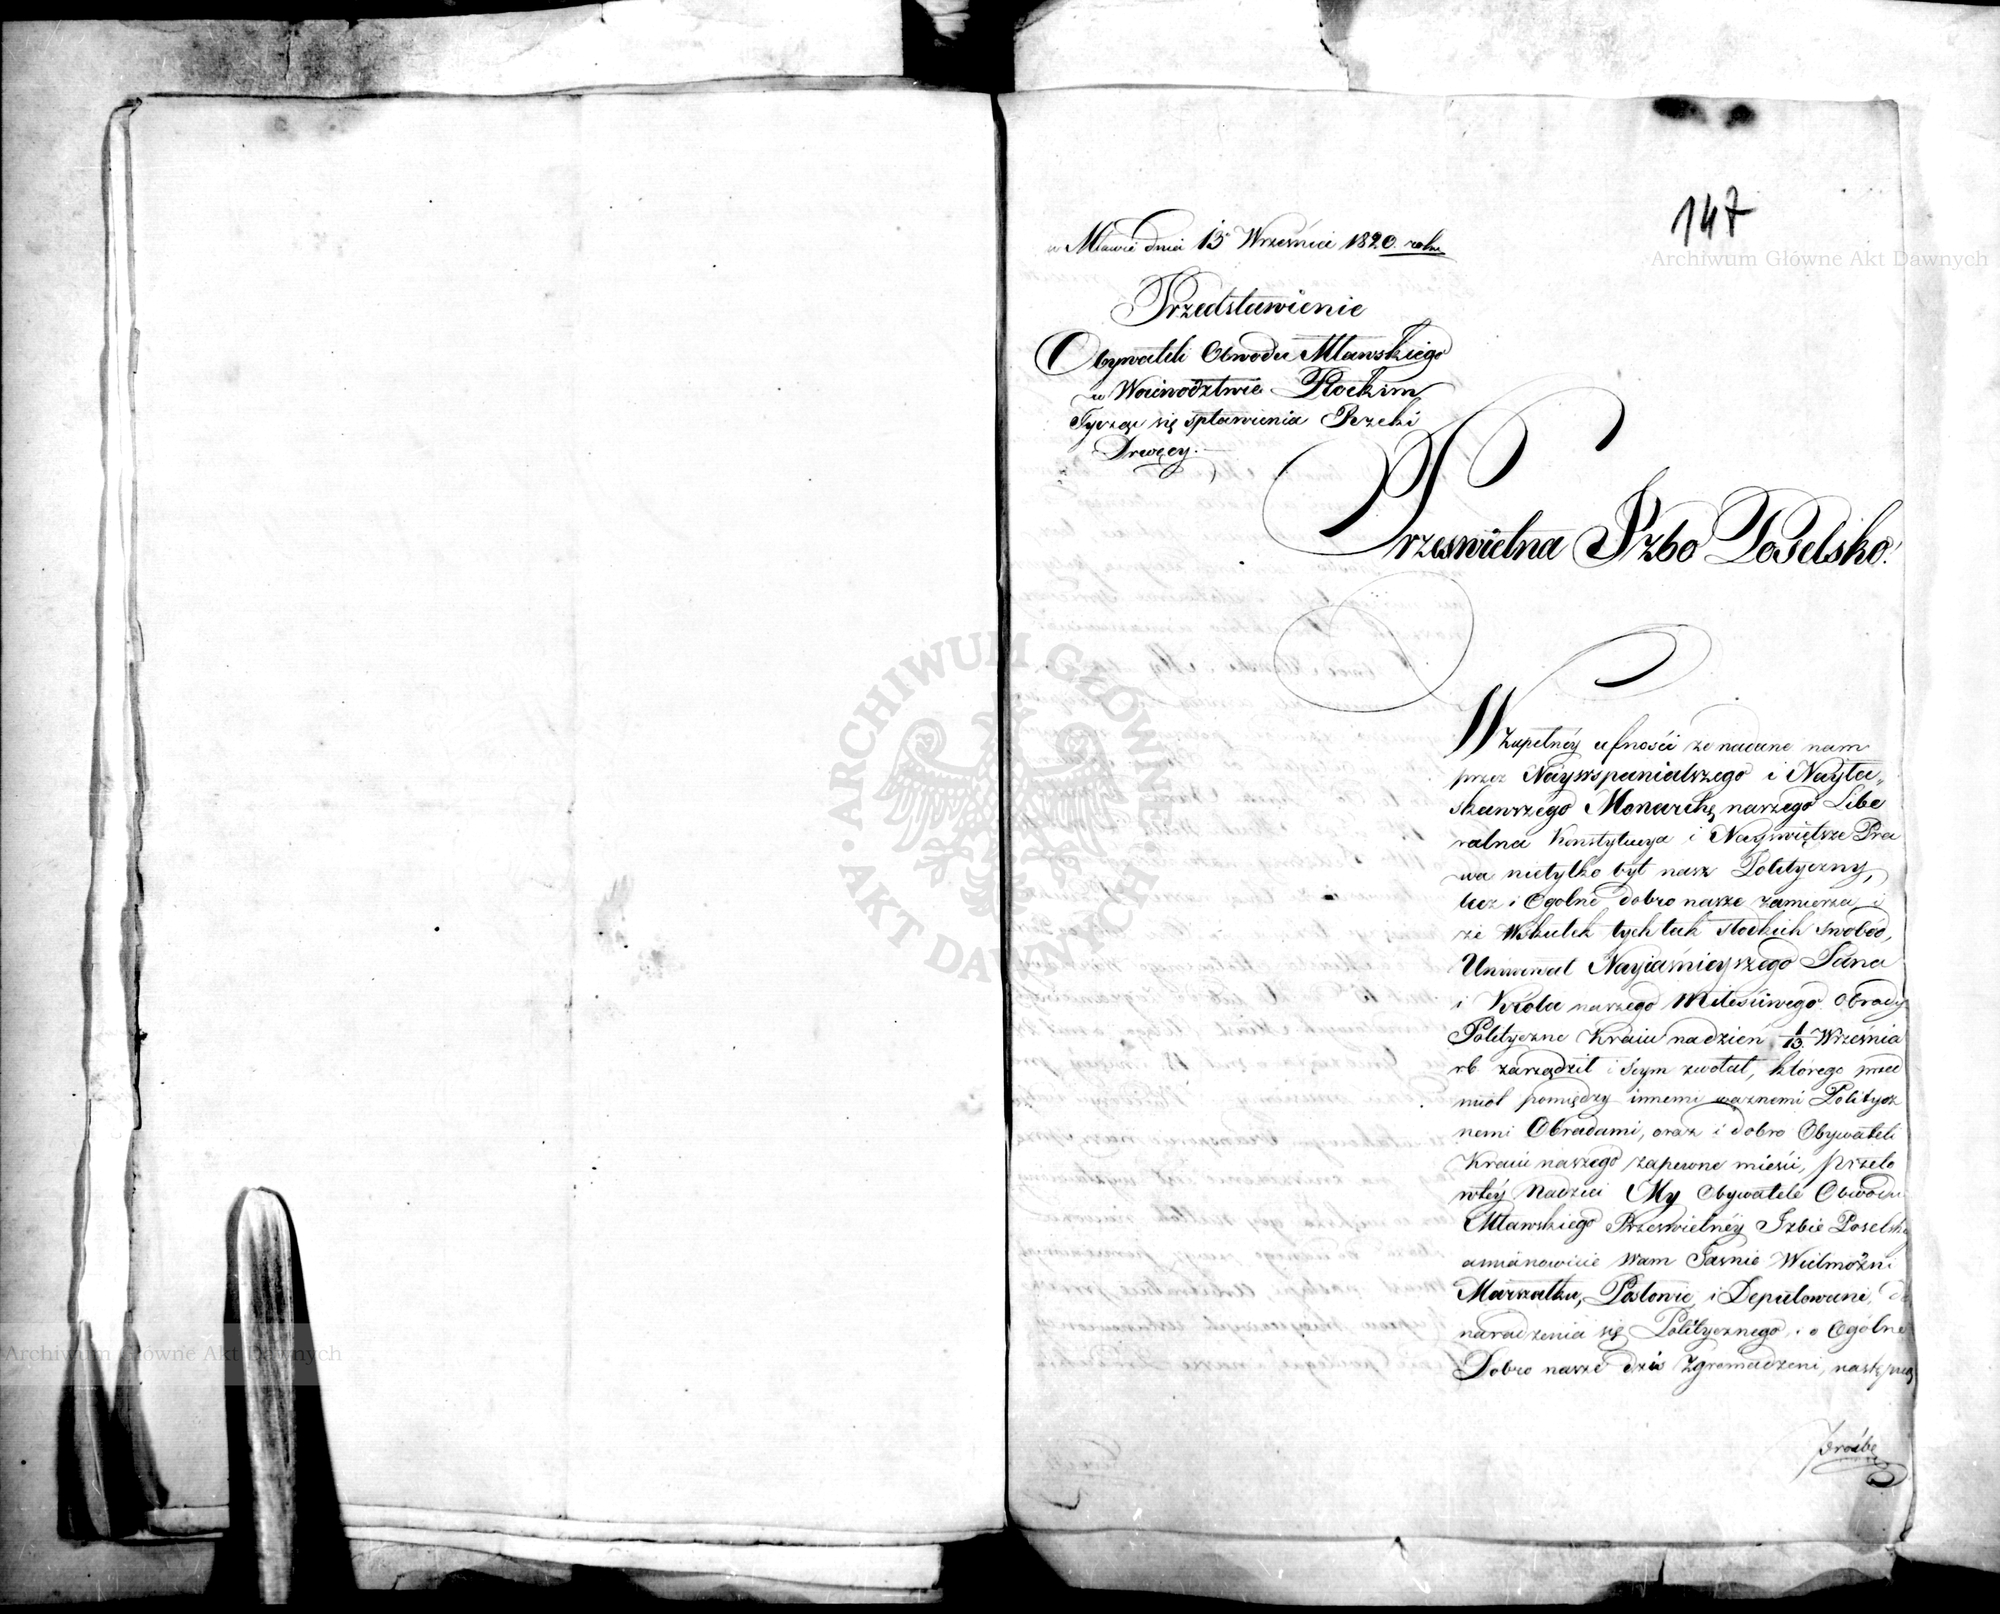 147
w Mławie dnia 13 Września 1820. roku
Przedstawienie
Obywateli Obwodu Mławskiego
w Woiewodztwie Płockim
Tycząc się spławienia Rzeki
Drwęcy.
Prześwietna Izbo Poselsko!
W zupełnéy ufności że nadane nam
przez Naywspanialszego i Nayła„
skawszego Monarchę naszego Libe
ralna Konstytucya i Nayświętsze Pra
wa nietylko byt nasz Polityczny,
lecz i Ogolne dobro nasze zamierza, i
że wskutek tych tak słodkich swobód,
Uniwersał Nayiaśnieyszego Pana
i Króla naszego Miłościwego Obrady
Polityczne Kraiu nadzień 1/13. Września
rb zarządził i Seym zwołał, którego przed
miot pomiędzy innemi ważnemi Politycz
nemi Obradami, oraz i dobro Obywateli
Kraiu naszego zapewne mieści, przeto
wtéy Nadziei My Obywatele Obwodu
Mławskiego Prześwietnéy Izbie Poselski
amianowicie Wam Jaśnie Wielmożni
Marszałku, Posłowie i Deputowani, do
naradzenia się Politycznego i o Ogólne
Dobro nasze dziś Zgromadzeni, następuą
Prośbę
ARCHIWUM GŁÓWNE AKT DAWNYCH
Archiwum Główne Akt Dawnych
Archiwum Główne Akt Dawnych